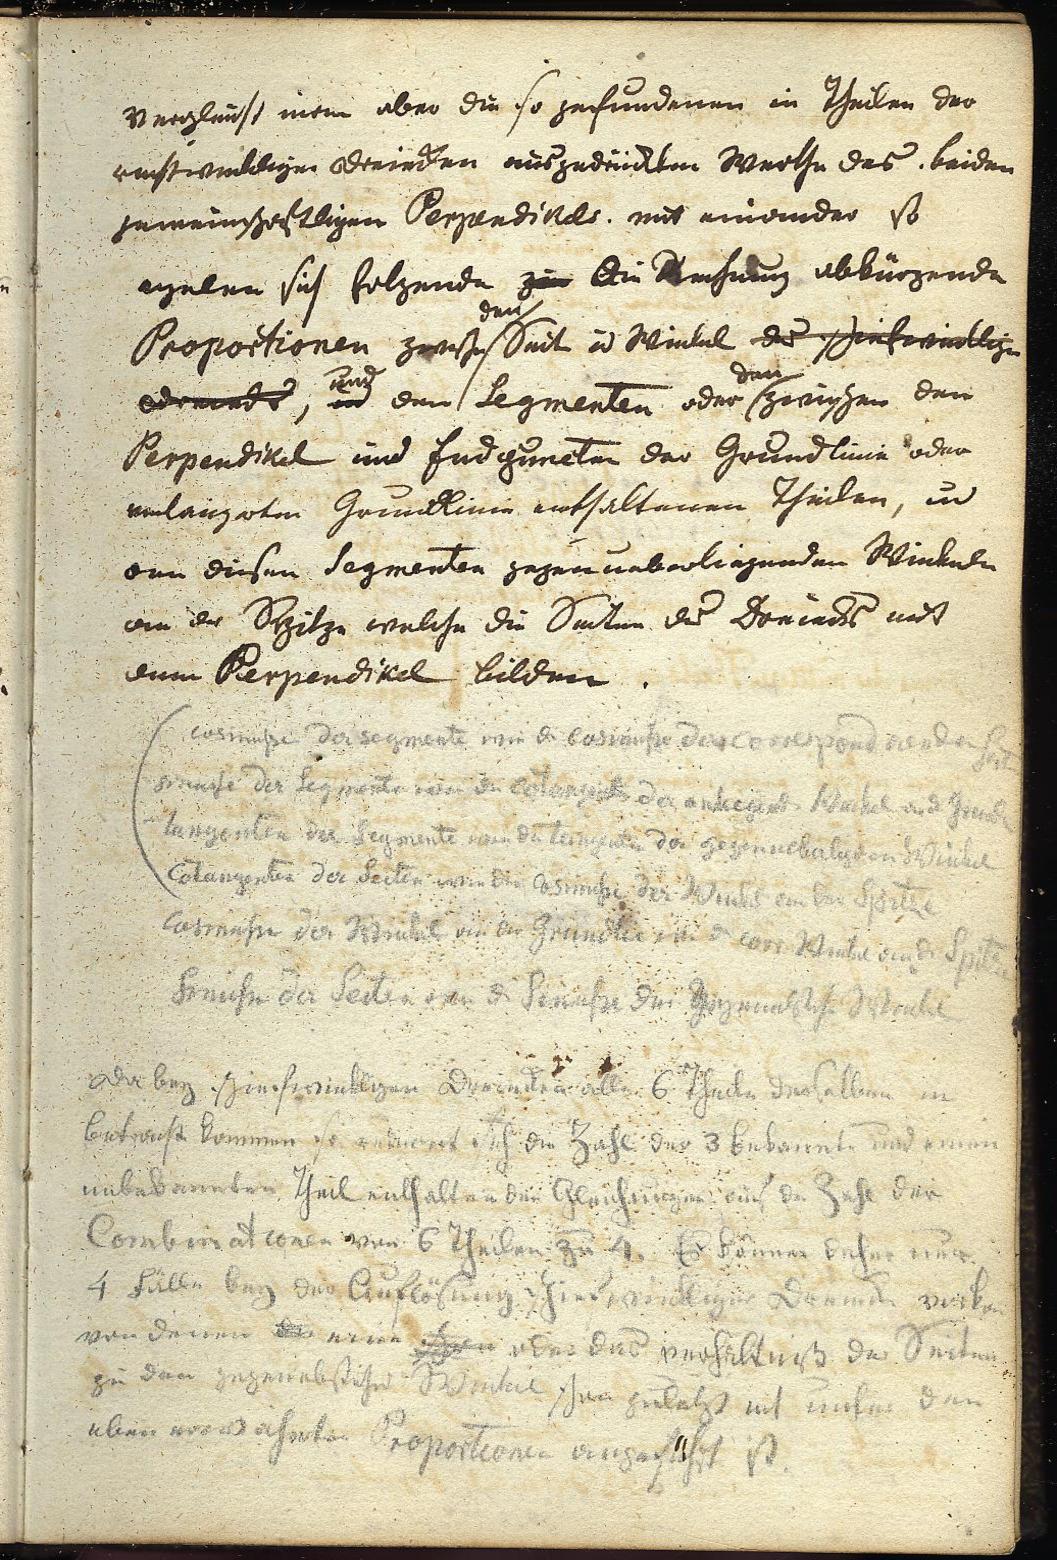 Vergleicht man aber die so gefundenen in Theilen der
rechtwinkligen Dreiecken ausgedrückten Werthe des beiden
gemeinschaftlichen Perpendikels mit einander so
ergeben sich folgende zur die Rechnung abkürzende
Proportionen zwischen den Seit u Winkel des schiefwinklige
Dreiecks, und den Segmenten oder den zwischen den
Perpendikel und Endpuncten der Grundlinie oder
verlängerten Grundlinie enthaltenen Theilen, u
den diesen Segmenten gegenueberliegenden Winkeln
an der Spitze welche die Seiten des Dreiecks mit
dem Perpendikel bilden.
cosinusse der segmente wie die cosinusse der correspondirenden Seit
sinusse der Segmente wie die cotangente der anliegend Winkel an d Grundl
tangenten der Segmente wie die tangenten der gegenueberlgden Winkel
Cotangenten der Seiten wie die Cosinusse der Winkel an der Spitze
Cosinusse der Winkel an der Grundlinie wie d corr Winkel an d Spitze
Sinusse der Seiten wie di Sinusse der Gegenueblgde Winkel
Da bey schiefwinkligen Dreiecken alle 6 Theile derselben in
betracht kommen so reducirt sich die Zahl der 3 bekannte und einen
unbekannten Theil enthaltenden Gleichungen auf die Zahl der
Combinationen von 6 Theilen zu 4. Es können daher nur
4 Fälle bey der Auflösung schiefwinkliger Dreiecke vorkom
von denen der eine oder das verhältniß der Seiten
zu den gegenueblgde Winkel schon zuletzt mit unter den
eben erwähnten Proportionen angeführt ist.